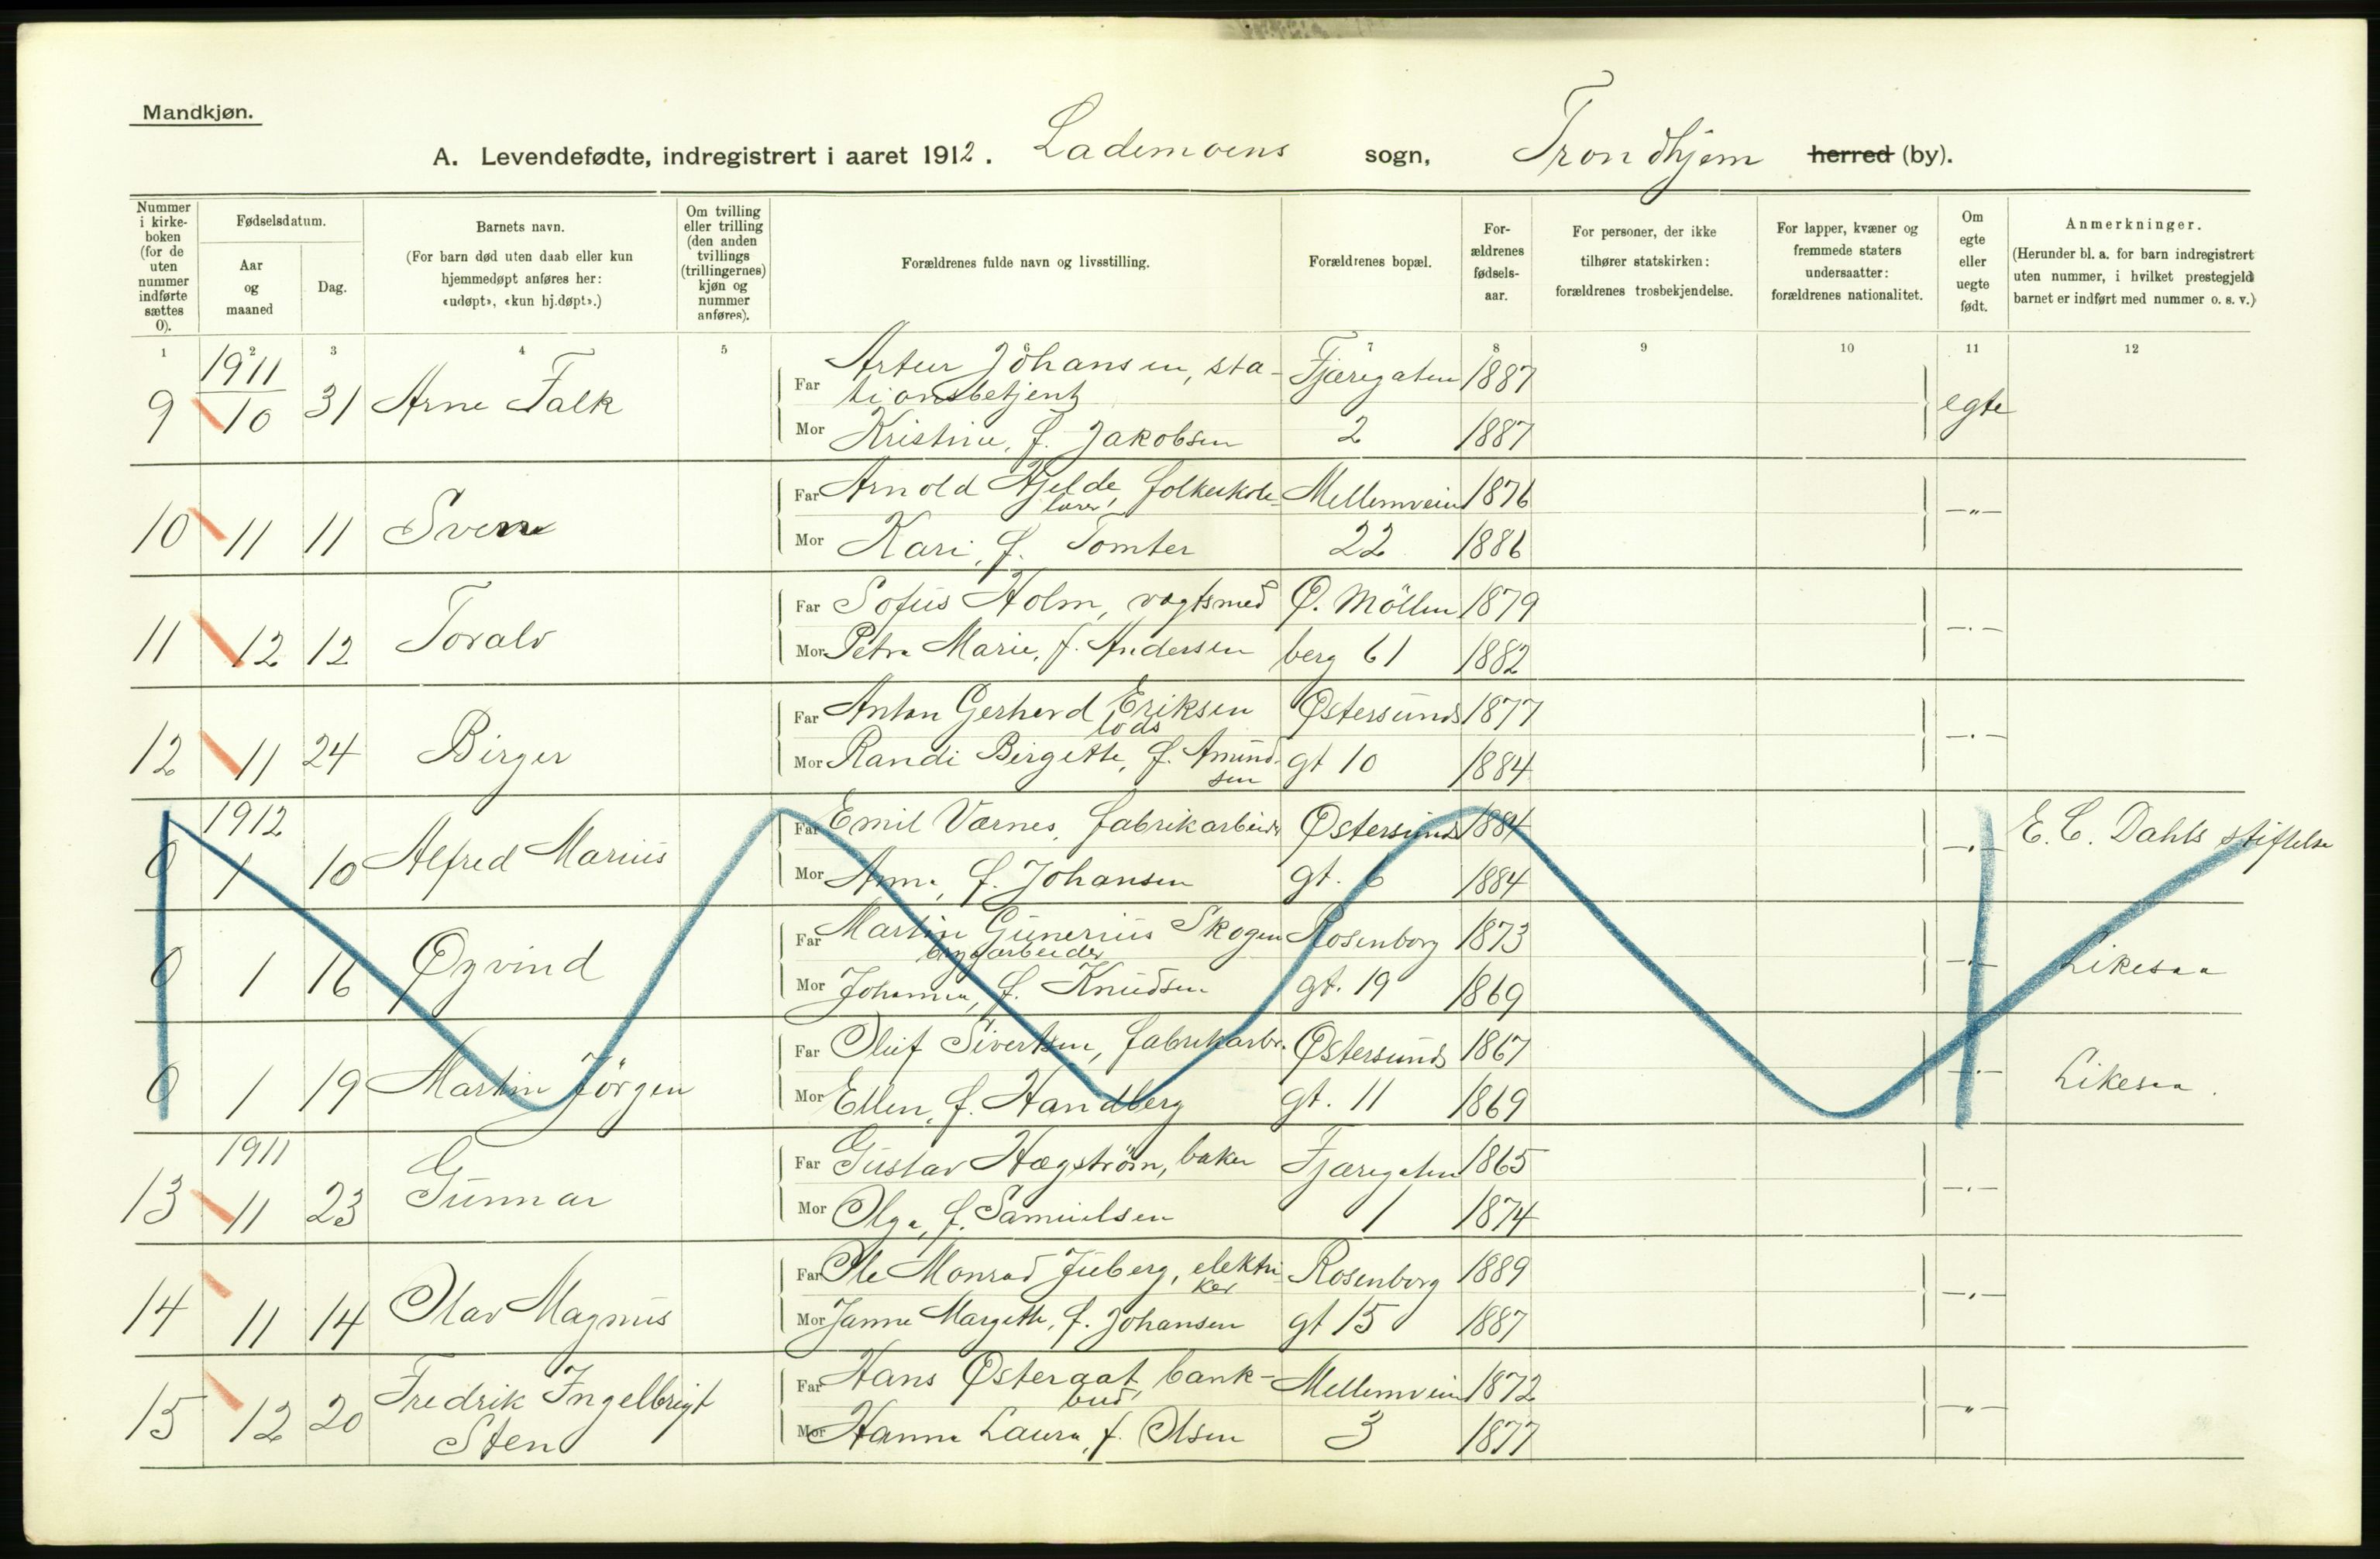 Mandkjøn.
A. Levendefødte, indregistrert i aaret 1912. Lademoens sogn, Trondhjem herred (by).
Nummer i kirke-boken (for de uten nummer indførte sættes 0).
Fødselsdatum.
Aar og maaned
Dag.
Barnets navn.
(For barn død uten daab eller kun hjemmedøpt anføres her: «udøpt», «kun hj.døpt».)
Om tvilling eller trilling (den anden tvillings (trillingernes) kjøn og nummer anføres).
Forældrenes fulde navn og livsstilling.
Forældrenes bopæl.
For-ældrenes fødsels-aar.
For personer, der ikke tilhører statskirken: forældrenes trosbekjendelse.
For lapper, kvæner og fremmede staters undersaatter: forældrenes nationalitet.
Om egte eller uegte født.
Anmerkninger.
(Herunder bl. a. for barn indregistrert uten nummer, i hvilket prestegjeld barnet er indført med nummer o. s. v.)
1 2 3 4 5 6 7 8 9 10 11 12
1911
9 10 31 Arne Falk Far Artur Johansen, sta- Fjæregaten 1887 egte
tionsbetjent
Mor Kristine, f. Jakobsen 2 1887
10 11 11 Sverre Far Arnold Hjelde, folkeskole- Mellemveien 1876 —„—
lærer
Mor Kari, f. Tomter 22 1886
11 12 12 Toralv Far Sofus Holm, vogtsmed Ø. Möllen 1879 —.—
Mor Petra Marie, f. Andersen berg 61 1882
12 11 24 Birger Far Anton Gerhard Eriksen Østersunds 1877 —.—
lods
Mor Randi Birgette, f. Amund- gt 10 1884
sen
1912
0 1 10 Alfred Marius Far Emil Værnes, fabrikarbeider Østersunds 1884 —.— E. C. Dahls stiftelse
Mor Anna, f. Johansen gt. 6 1884
0 1 16 Øyvind Far Martin Gunerius Skogen Rosenborg 1873 —.— Likesaa
bryggarbeider
Mor Johanna, f. Knudsen gt. 19 1869
0 1 19 Martin Jörgen Far Oluf Sivertsen, fabrikarbr. Østersunds 1867 —.— Likesaa.
Mor Ellen, f. Handberg gt. 11 1869
1911
13 11 23 Gunnar Far Gustav Hægström, baker Fjæregaten 1865 —.—
Mor Olga, f. Samuelsen 1 1874
14 11 14 Olav Magnus Far Ole Monrad Juberg, elektri- Rosenborg 1889 —.—
ker
Mor Janna Margethe, f. Johansen gt 15 1887
15 12 20 Fredrik Ingelbrigt Far Hans Østeraat, bank- Mellemveien 1872 —„—
Sten bud
Mor Hanna Laura, f. Olsen 3 1877